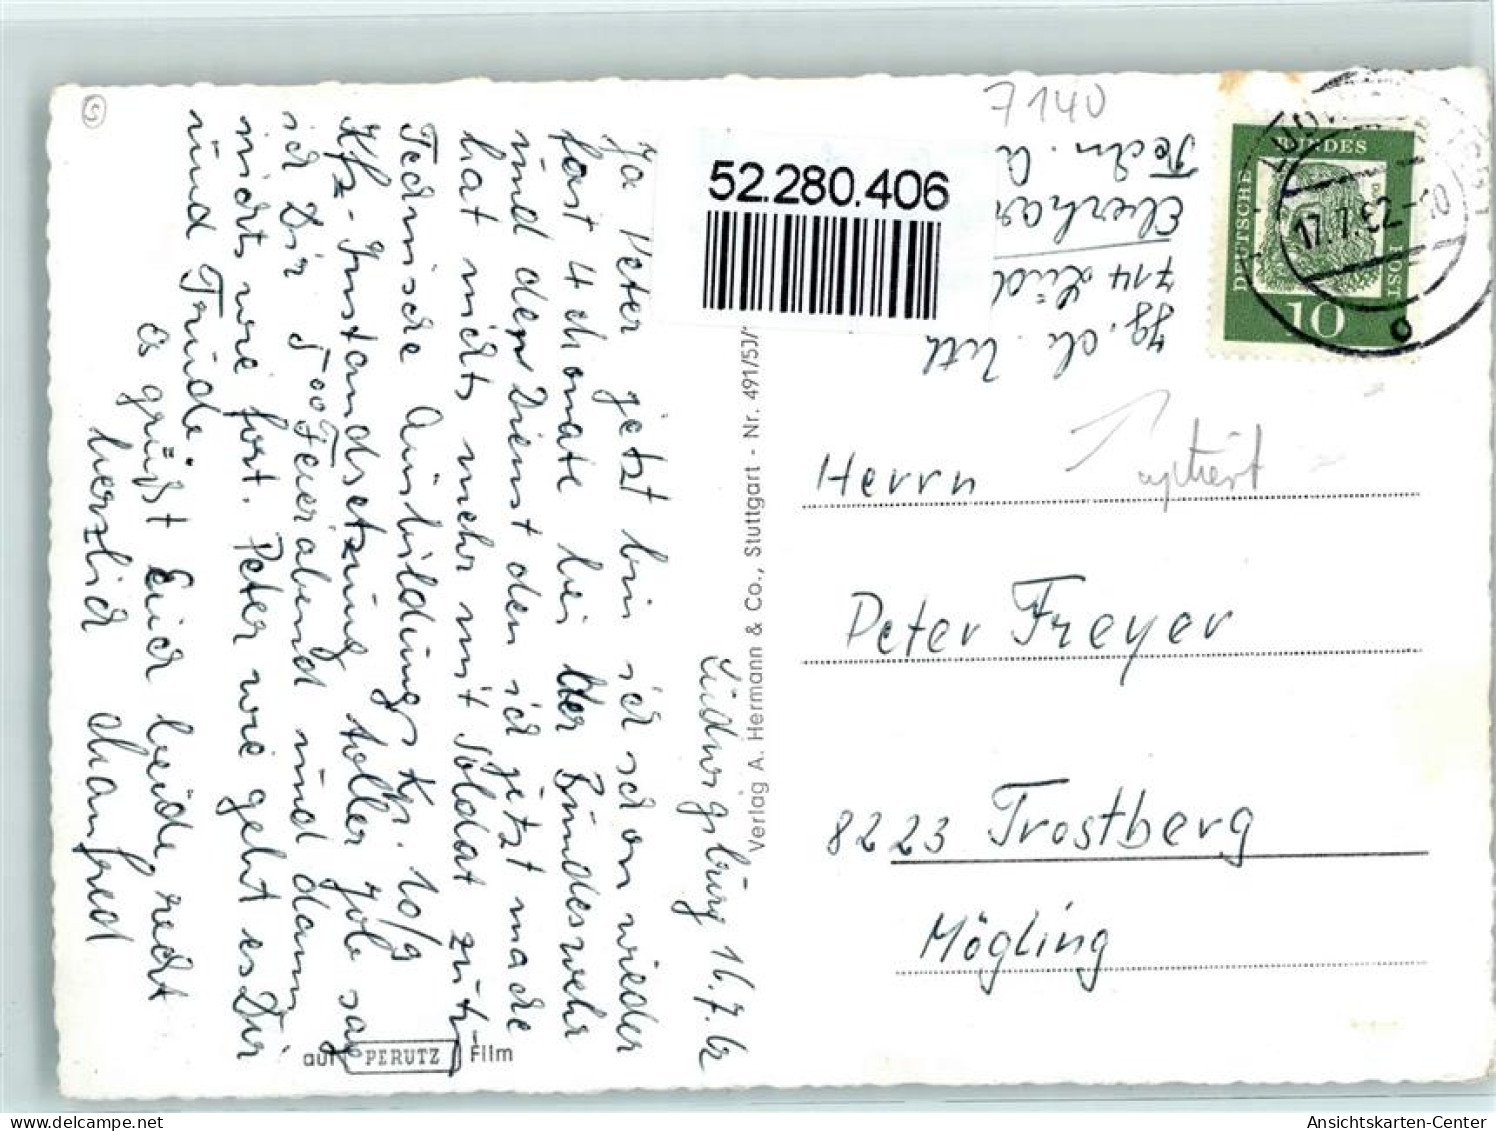 7140
52.280.406
Techn. A
Eberhar
714 Lud
DEUTSCHE BUNDESPOST
10
17.7.62-10
Herrn
Peter Freyer
8223 Trostberg
Mögling
Verlag A. Hermann & Co., Stuttgart - Nr. 491/53/
Ludwigsburg 16.7.62
Ja Peter jetzt bin ich schon wieder
fast 4 Monate bei der Bundeswehr
und der Dienst den ich jetzt mache
hat nichts mehr mit Soldat zutu
Technische Ausbildungs Kp. 10/9
Kfz-Instandsetzung toller Job sag
ich Dir 5 00 Feierabend und dann
nichts wie fort. Peter wie geht es Dir
und Trude.
Es grüßt Euch beide, recht
herzlich Manfred
auf PERUTZ Film
Ansichtskarten-Center